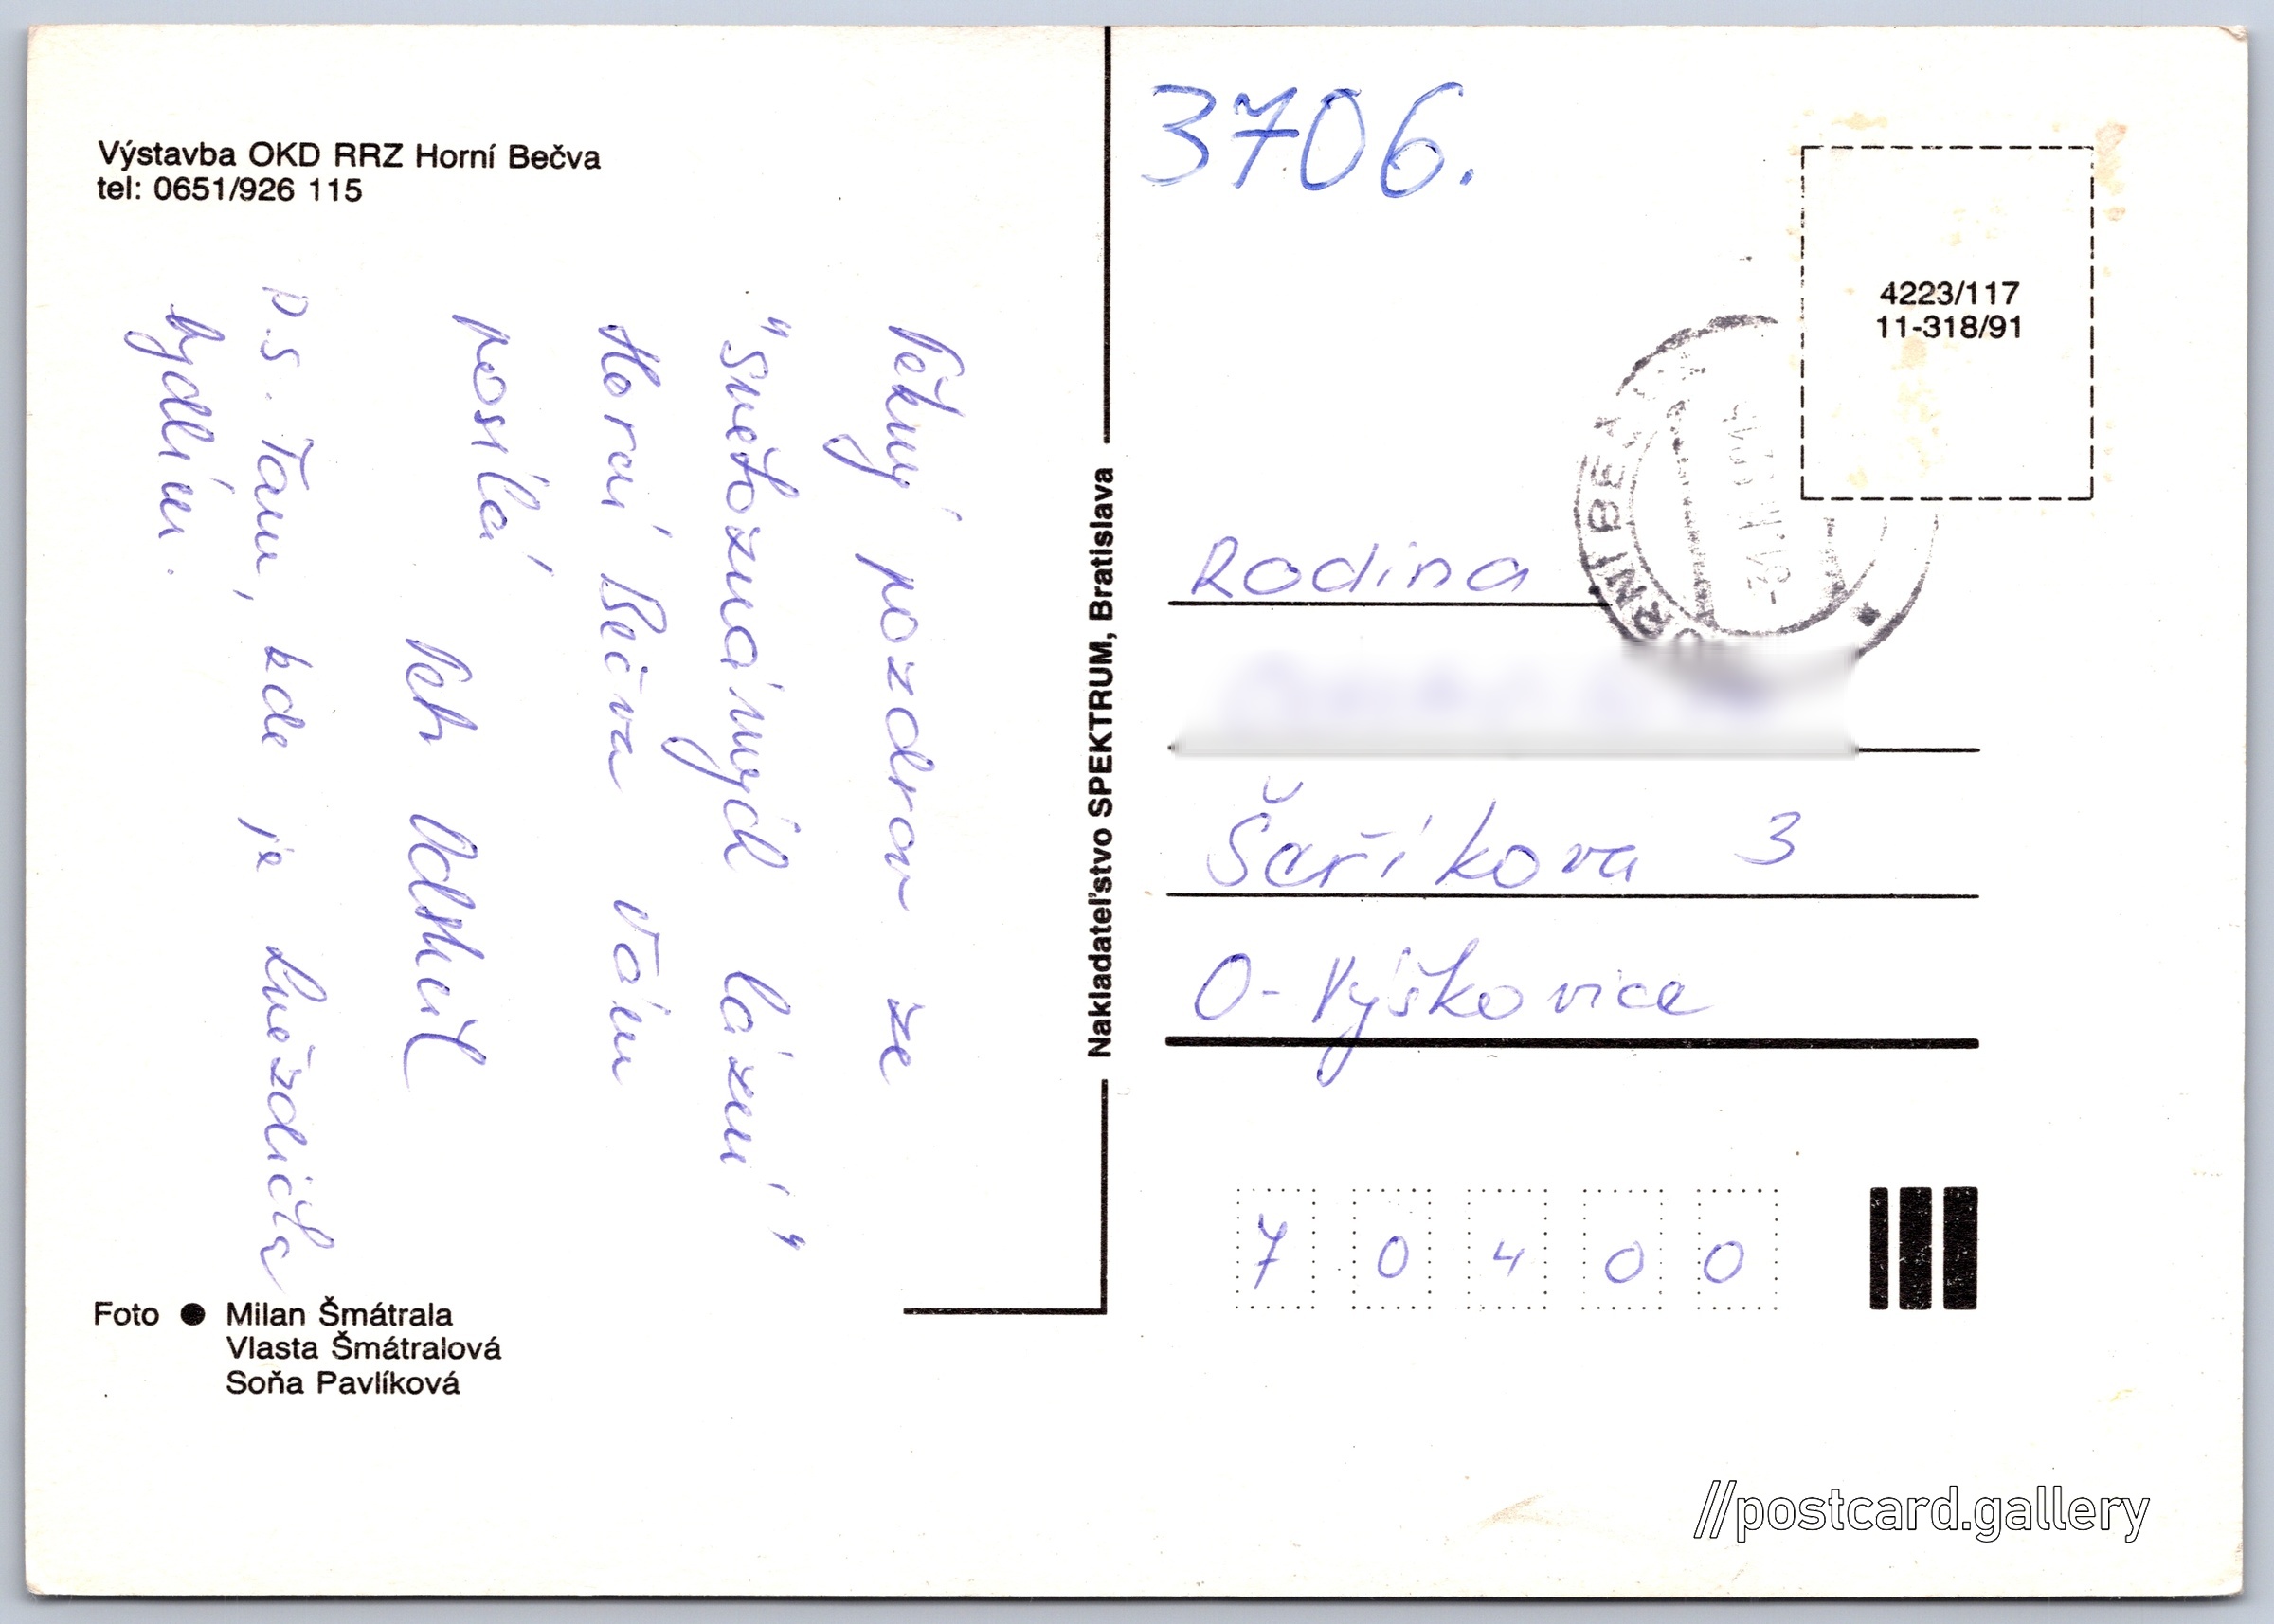 Výstavba OKD RRZ Horní Bečva
tel: 0651/926 115
Pěkný pozdrav ze
"světoznámých lázní"
Horní Bečva Vám
posílá
Petr
P.S. Tam, kde je
bydlím.
Foto ● Milan Šmátrala
Vlasta Šmátralová
Soňa Pavlíková
Nakladateľstvo SPEKTRUM, Bratislava
3706.
4223/117
11-318/91
Rodina
Šaříkova 3
O-Výškovice
7 0 4 0 0
//postcard.gallery